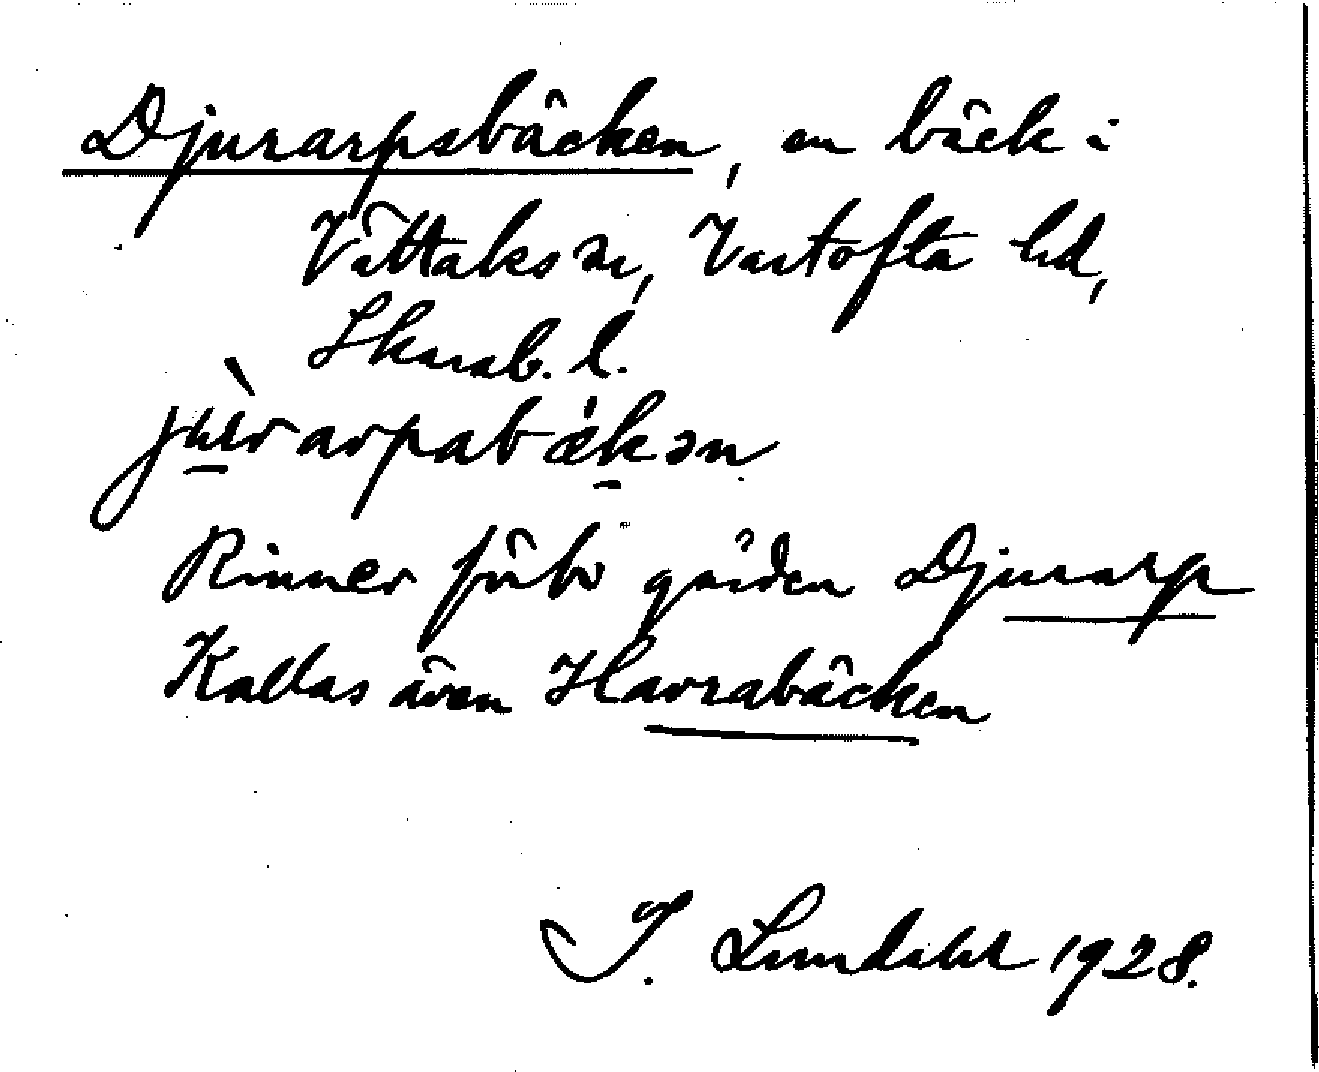 Djurarpsbäcken, en bäck i
Vättaks sn, Vartofta hd,
Skarab. l.
jùrarpabækən
Rinner förbi gården Djurarp
Kallas även Havrabäcken
I. Lundahl 1928.